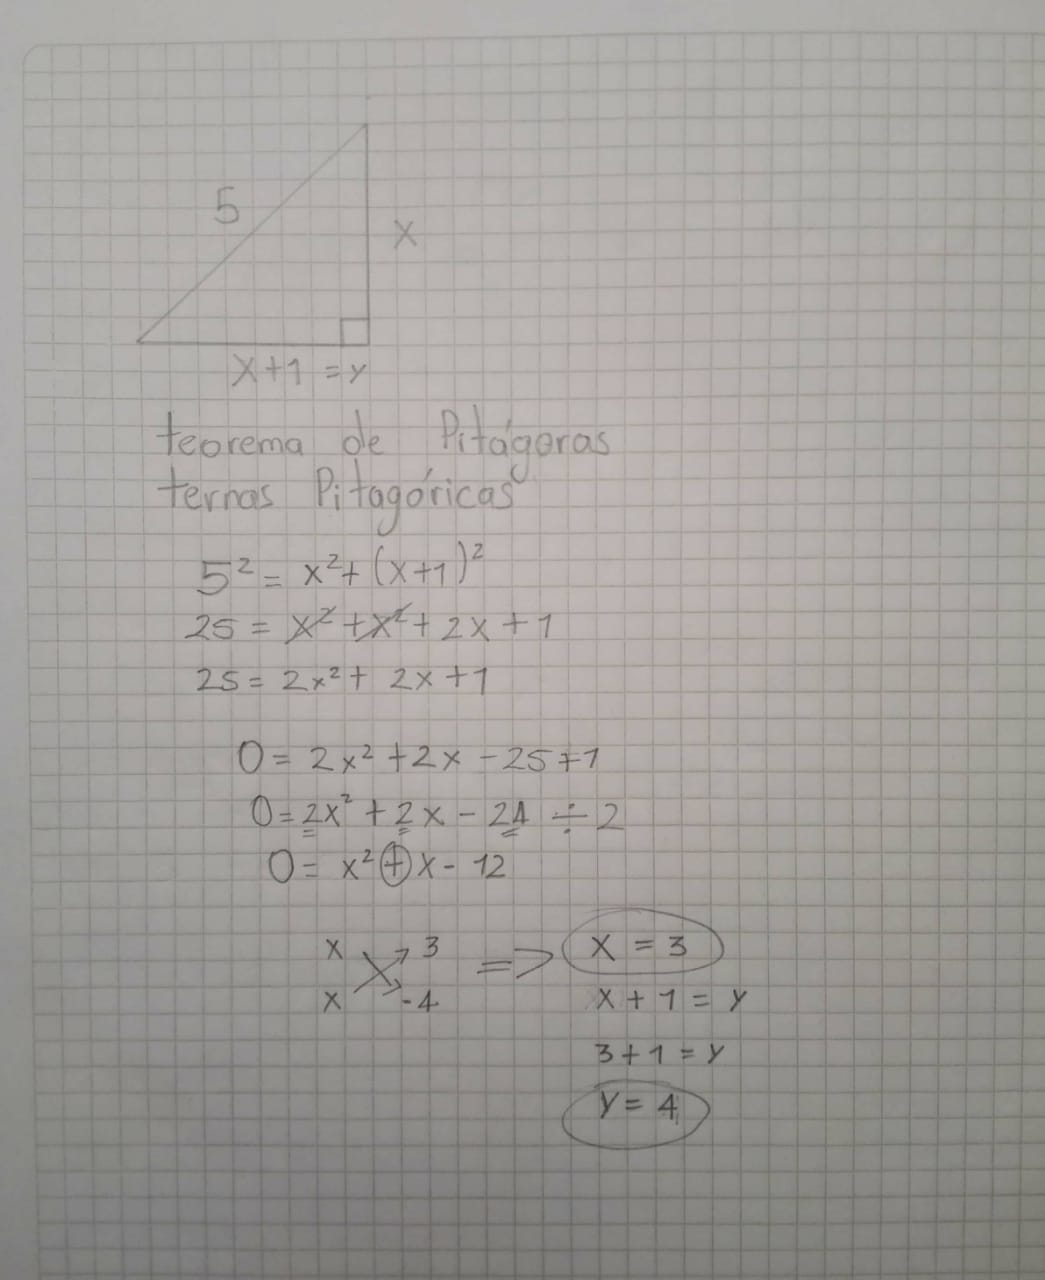 5
x
x+1 = y
teorema de Pitágoras
ternas Pitagóricas
5² = x²+ (x+1)²
25 = x² + x² + 2x + 1
25 = 2x² + 2x + 1
0 = 2x² + 2x - 25 + 1
0 = 2x² + 2x - 24 ÷ 2
0 = x² + x - 12
x 3 => x = 3
x -4 x + 1 = y
3 + 1 = y
y = 4